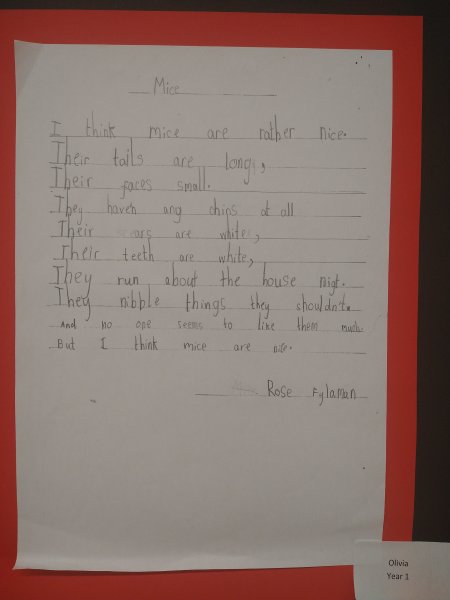 Mice
I think mice are rather nice.
Their tails are long,
Their faces small.
They haven any chins at all
Their ears are white,
Their teeth are white,
They run about the house nigt.
They nibble things they shouldn't
And no one seems to like them much
But I think mice are nice.
Rose Fylaman
Olivia
Year 1